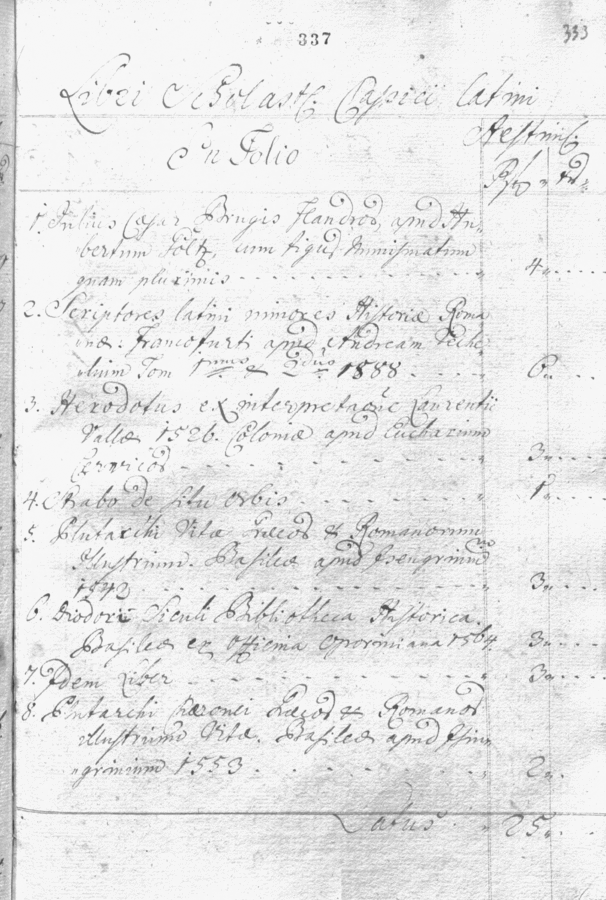 337
333
Libri Scholastc. Classici latini
Aestimc.
In Folio
Rfl " xd
1. Julius Cæsar Brugis Flandroȓ, apud Hu-
bertum Goltz, cum figuȓ Numismatum
quam plurimis - - - - 4 "
2. Scriptores latini minores Historiæ Roma
næ: Francofurti apud Andream Weche-
lium Tom 1mus et 2dus 1888 - - 6 "
3. Herodotus ex interpretaoñe Laurentii
Vallæ 1526. Coloniæ apud Eucharium
- - - - 3 "
4. Strabo de situ Orbis - - - - 1 "
5. Plutarchi Vitæ Græcoȓ & Romanorum
Illustrium. Basileæ apud Isengrinium
1542 - - - - 3 "
6. Diodori Siculi Bibliotheca Historica.
Basileæ ex officina Oporiniana 1564. 3 "
7. Idem Liber - - - - 3 "
8. Plutarchi Græcoȓ & Romanoȓ
illustrium Vitæ. Basileæ apud Isin-
grinium 1553 - - - - 2 "
Latus " 25 "